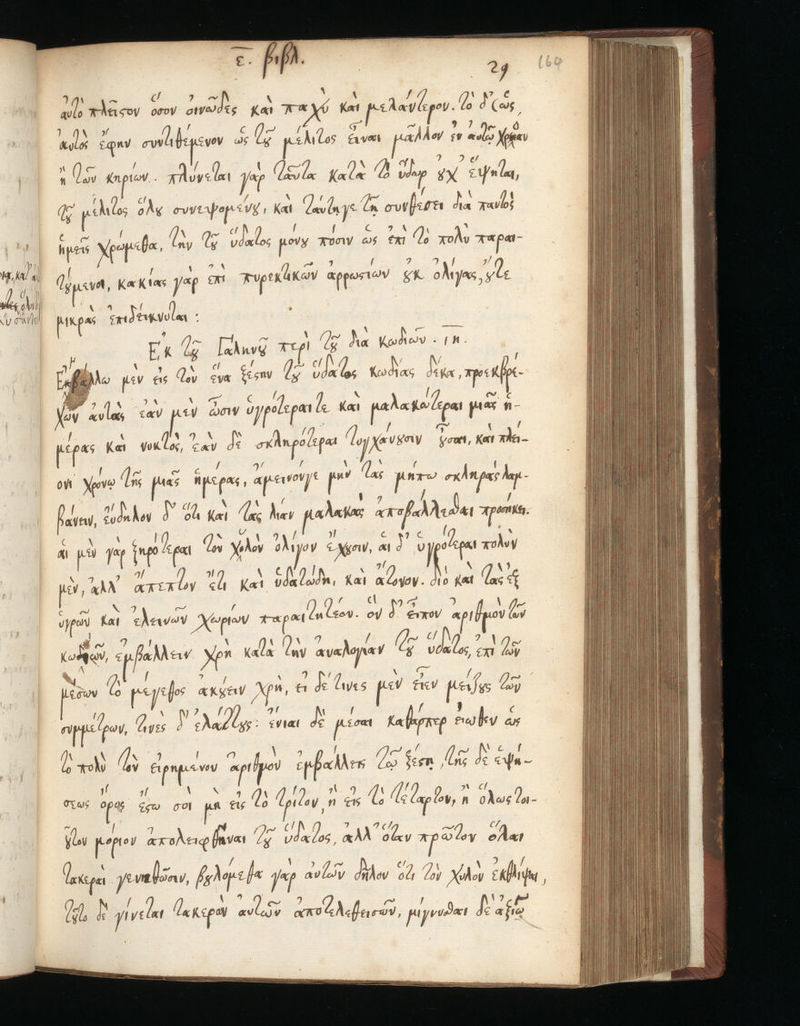 ε. βιβλ.
29 164
ἀυτὸ πλεῖστον ὅσον οἰνῶδες καὶ παχὺ καὶ μελάντερον. τὸ δ'
ἀυτὸς ἔφην συντιθέμενον ὡς τοῦ μέλιτος εἶναι μᾶλλον ἐν ἀυτῷ
ἢ τῶν κηρίων. πλύνεται γὰρ ταῦτα κατὰ τὸ ὕδωρ οὐχ' ἕψηται,
τοῦ μέλιτος ὅλου συνεψομένου, καὶ ταύτῃγε τῇ συνθέσει διὰ παντὸς
ἡμεῖς χρώμεθα, τὴν τοῦ ὕδατος μόνου πόσιν ὡς ἐπὶ τὸ πολὺ παραι-
τούμενοι, κακίας γὰρ ἐπὶ πυρεκτικῶν ἀρρωστίων οὐκ ὀλίγας, οὔτε
μικρὰς ἐπιδείκνυται :
Ἐκ τοῦ Γαληνοῦ περὶ τοῦ διὰ κωδιῶν. ιη.
Ἐμβάλλω μὲν εἰς τὸν ἕνα ξέστην τοῦ ὕδατος κωδίας δέκα, προεκβρέ-
χων ἀυτὰς ἐὰν μὲν ὦσιν ὑγρότεραιτε καὶ μαλακώτεραι μιᾶς ἡ-
μέρας καὶ νυκτὸς, ἐὰν δὲ σκληρότεραι τυγχάνουσιν οὖσαι, καὶ πλεί-
ονι χρόνῳ τῆς μιᾶς ἡμέρας, ἀμεινόνγε μὴν τὰς μήπω σκληρὰς λαμ-
βάνειν, ἔυδηλον δ' ὅτι καὶ τὰς λίαν μαλακὰς ἀποβάλλεσθαι προσήκει.
αἱ μὲν γὰρ ξηρότεραι τὸν χυλὸν ὀλίγον ἔχουσιν, αἱ δ' ὑγρότεραι πολὺν
μὲν, ἀλλ' ἄπεπτον ἔτι καὶ ὑδατώδη, καὶ ἄτονον. διὸ καὶ τὰς ἐξ
ὑγρῶν καὶ ἑλεινῶν χωρίων παραιτητέον. ὃν δ' εἶπον ἀριθμὸν τῶν
κωδιῶν, ἐμβάλλειν χρὴ κατὰ τὴν ἀναλογίαν τοῦ ὕδατος, ἐπὶ τῶν
μέσων τὸ μέγεθος ἀκούειν χρὴ, εἰ δέ τινες μὲν εἶεν μείζους τῶν
συμμέτρων, τινὲς δ' ἐλάττους: ἔνιαι δὲ μέσαι καθάπερ εἴωθεν ὡς
τὸ πολὺ τὸν εἰρημένον ἀριθμὸν ἐμβάλλεις τῷ ξέστῃ, τῆς δὲ ἑψή-
σεως ὅρος ἔστω σοὶ μὴ εἰς τὸ τρίτον, ἢ εἰς τὸ τέταρτον, ἢ ὅλως τοι-
οῦτον μόριον ἀπολειφθῆναι τοῦ ὕδατος, ἀλλ' ὅταν πρῶτον ὅλαι
τακεραὶ γενηθῶσιν, βουλόμεθα γὰρ ἀυτῶν δῆλον ὅτι τὸν χυλὸν ἐκθλίψαι,
τοῦτο δὲ γίνεται τακερῶν ἀυτῶν ἀποτελεσθεισῶν, μίγνυσθαι δὲ ἀξιῶ